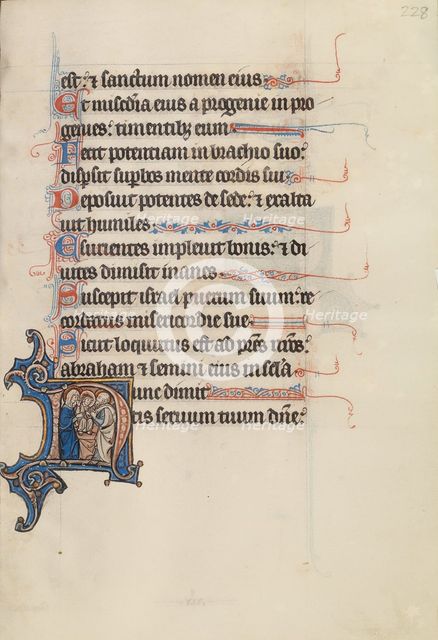 228
est: et sanctum nomen eius
Et misedia eius a progenie in pro
genies: timentibz eum
Fecit potentiam in brachio suo:
dispsit supbos mente cordis sui
Deposuit potentes de sede: et exalta
uit humiles
Esurientes impleuit bonis: et di
uites dimisit inanes
Suscepit israel puerum suum: re
cordatus misericordie sue
Sicut locutus est ad pres nros:
abraham et semini eius in secla
Nunc dimit
tis seruum tuum dne:
Heritage Heritage
Heritage Heritage
Heritage Heritage